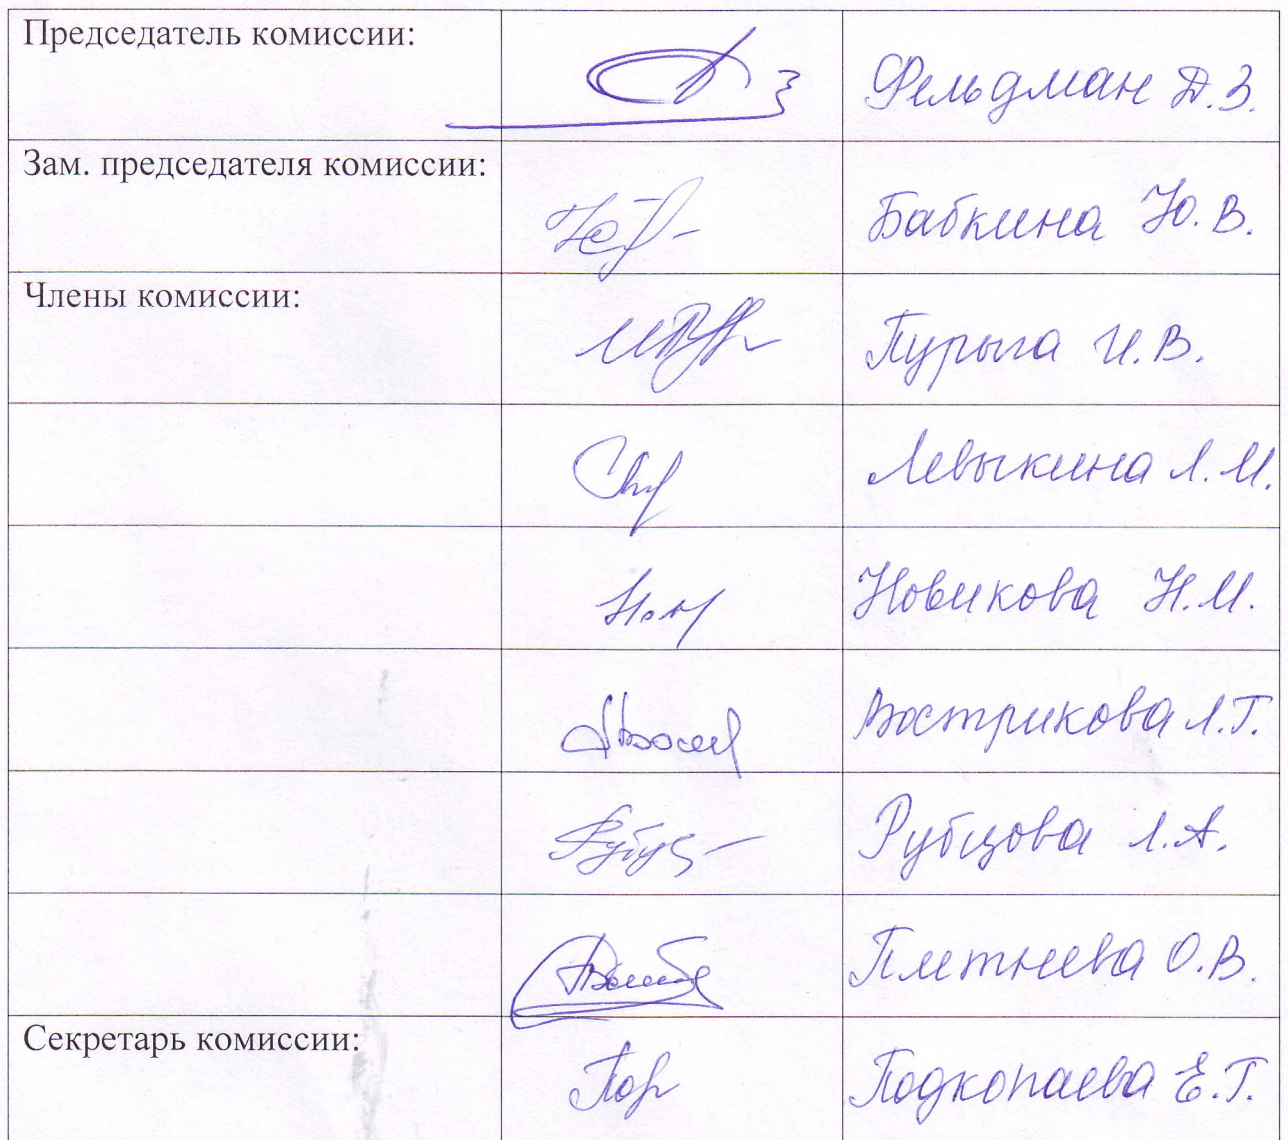 Председатель комиссии: Фельдман Д.З.
Зам. председателя комиссии: Бабкина Ю.В.
Члены комиссии: Пурыга И.В.
Левыкина Л.М.
Новикова Н.М.
Вострикова Л.Г.
Рубцова Л.А.
Плетнева О.В.
Секретарь комиссии: Подкопаева Е.Г.